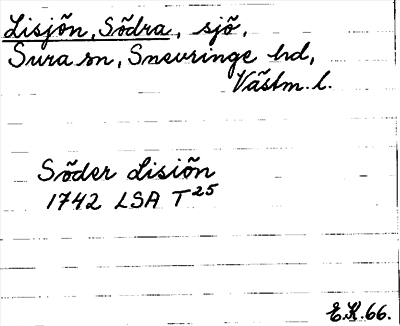 Lisjön, Södra, sjö,
Sura sn, Snevringe hd,
Västm. l.
Söder Lisiön
1742 LSA T25
E.K. 66.